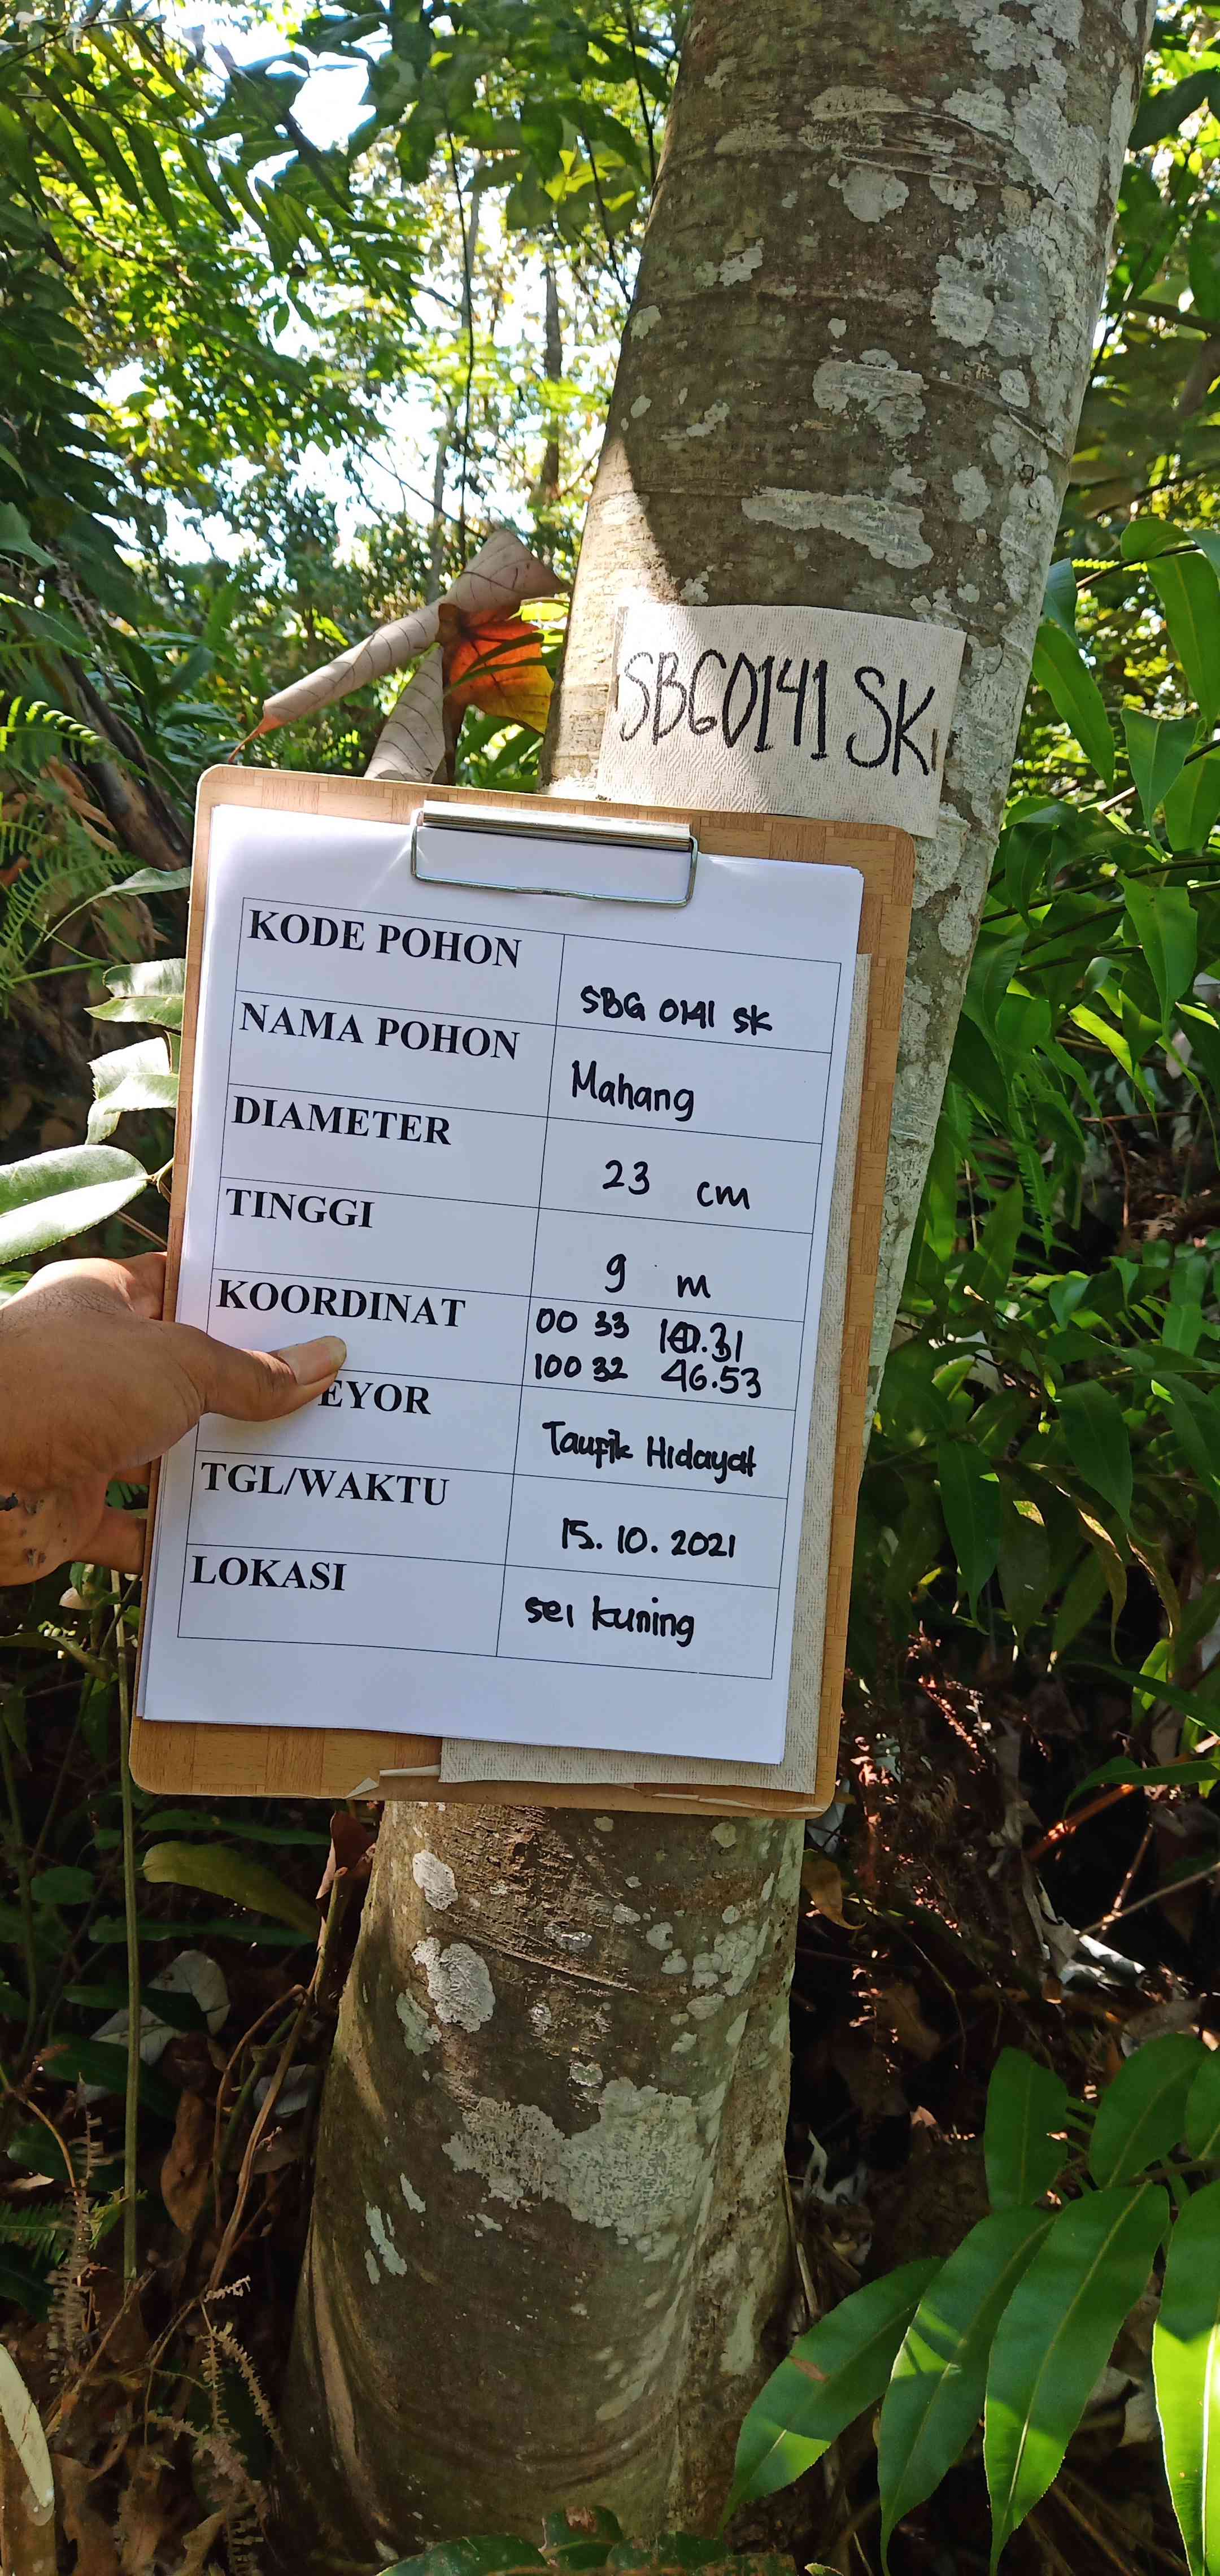 SBG0141 SK
KODE POHON SBG 0141 SK
NAMA POHON Mahang
DIAMETER 23 cm
TINGGI 9 m
KOORDINAT 00 33
100 32 46.53
EYOR Taufik Hidayat
TGL/WAKTU 15. 10. 2021
LOKASI sei kuning